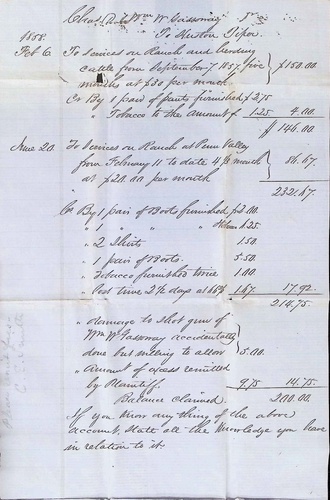 Chas. and Wm W Gassoway Dr
1858. To Newton Tipon.
Feb 6. To Services on Ranch and herding
cattle from September 7 1857 five $150.00
months at $30 per month
Cr By 1 pair of pants furnished $2.75
" Tobacco to the amount of 1.25 4.00
$146.00
June 20. To Services on Ranch at Penn Valley
from February 11 to date 4⅓ month 86.67
at $20.00 per month
232.67.
Cr By 1 pair of Boots furnished $3.00.
" 1 " " " 6.25.
" 2 Shirts 1.50
" 1 pair of Boots. 5.50
" Tobacco furnished twice 1.00
" Lost time 2½ days at 66⅔ 1.67. 17.92.
214.75.
" damage to Shot gun of
Wm W Gassoway accidentally
done but willing to allow 5.00.
" Amount of excess remitted
by Plaintiff. 9.75 14.75.
Balance claimed. 200.00.
If you know any thing of the above
account, State all the knowledge you have
in relation to it.